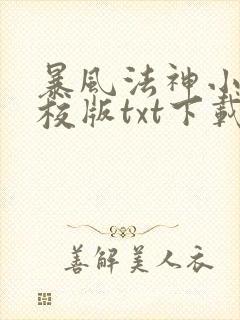 暴風法神小
校版txt下載
善解美人衣